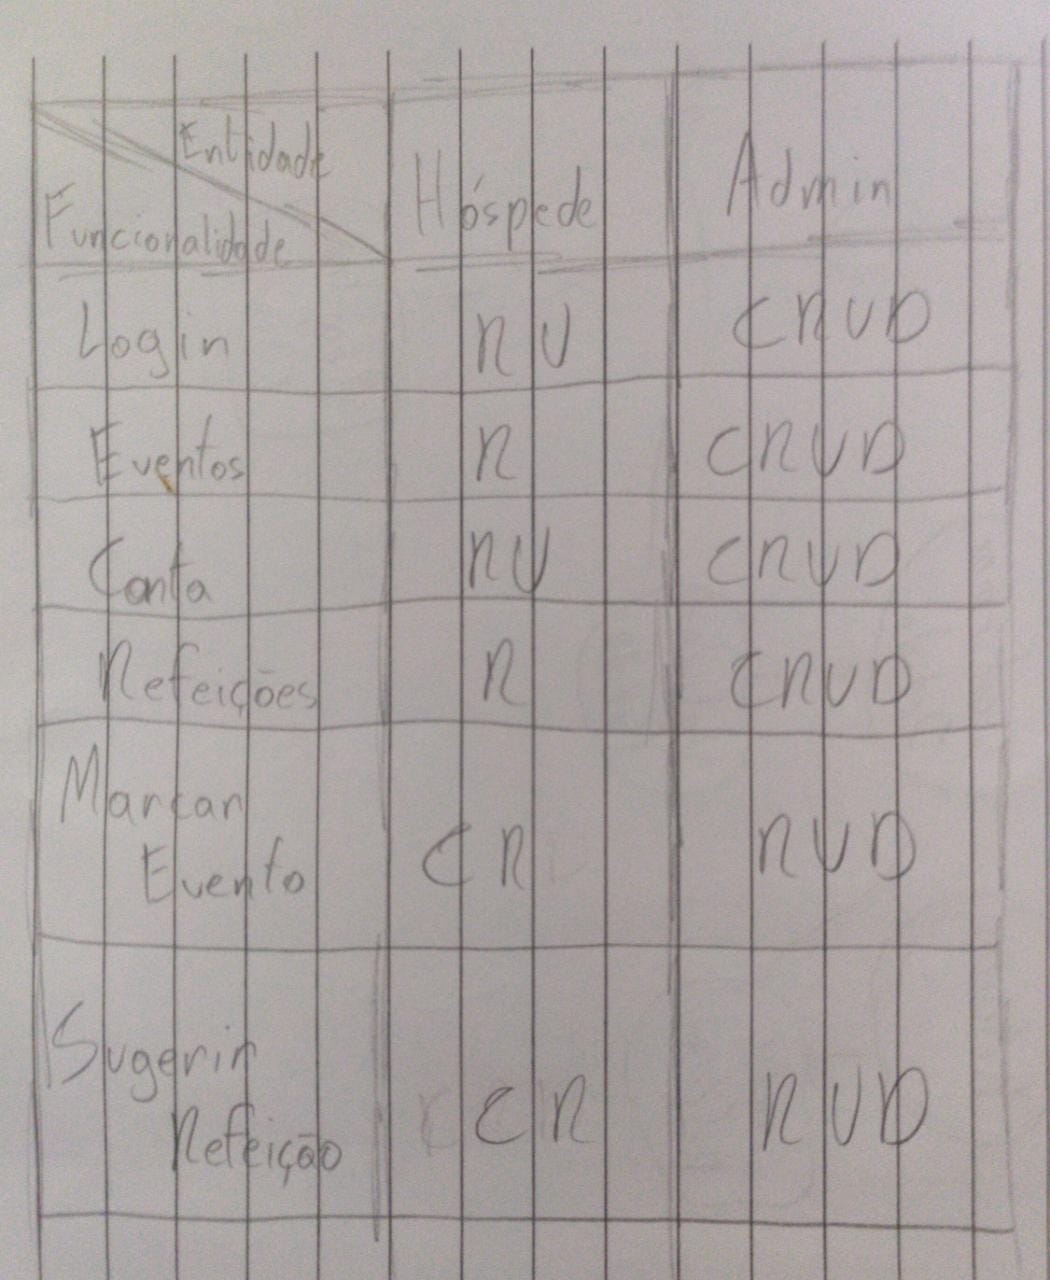 Entidade
Funcionalidade
Hóspede
Admin
Login
RU
CRUD
Eventos
R
CRUD
Conta
RU
CRUD
Refeições
R
CRUD
Marcar
Evento
CR
RUD
Sugerir
Refeição
CR
RUD